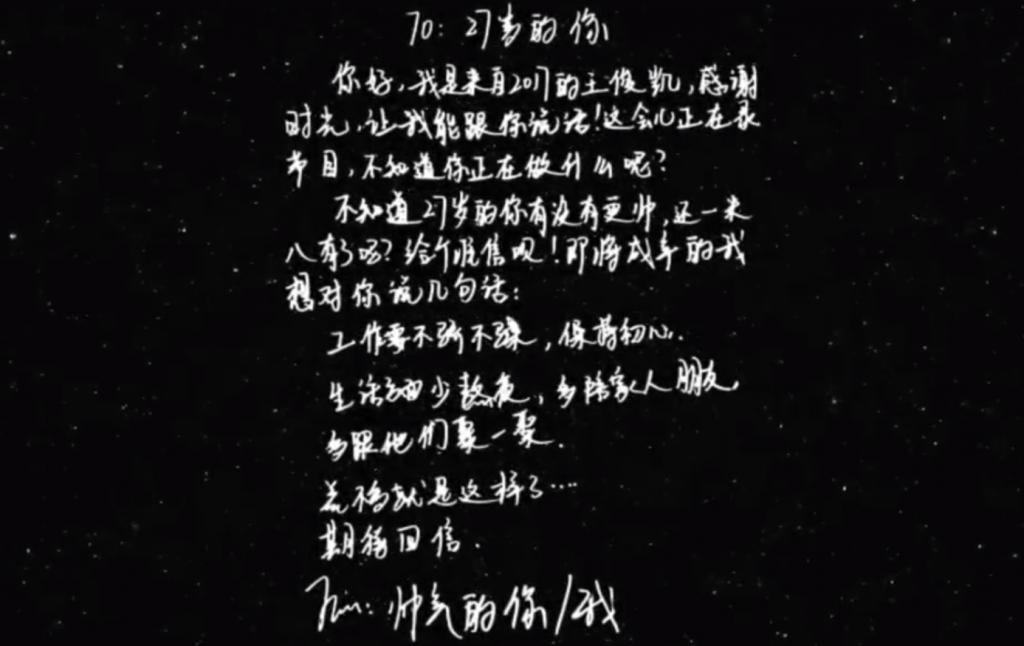 TO: 27岁的你
你好,我是来自2017的王俊凯,感谢
时光,让我能跟你说话!这会儿正在录
节目,不知道你正在做什么呢?
不知道27岁的你有没有更帅,还一米
八有了吧?给个准信呗!即将成年的我
想对你说几句话:
工作要不骄不躁,保持初心.
生活要少熬夜,多陪家人朋友,
多跟他们聚一聚.
差不多就是这样了….
期待回信.
From: 帅气的你/我